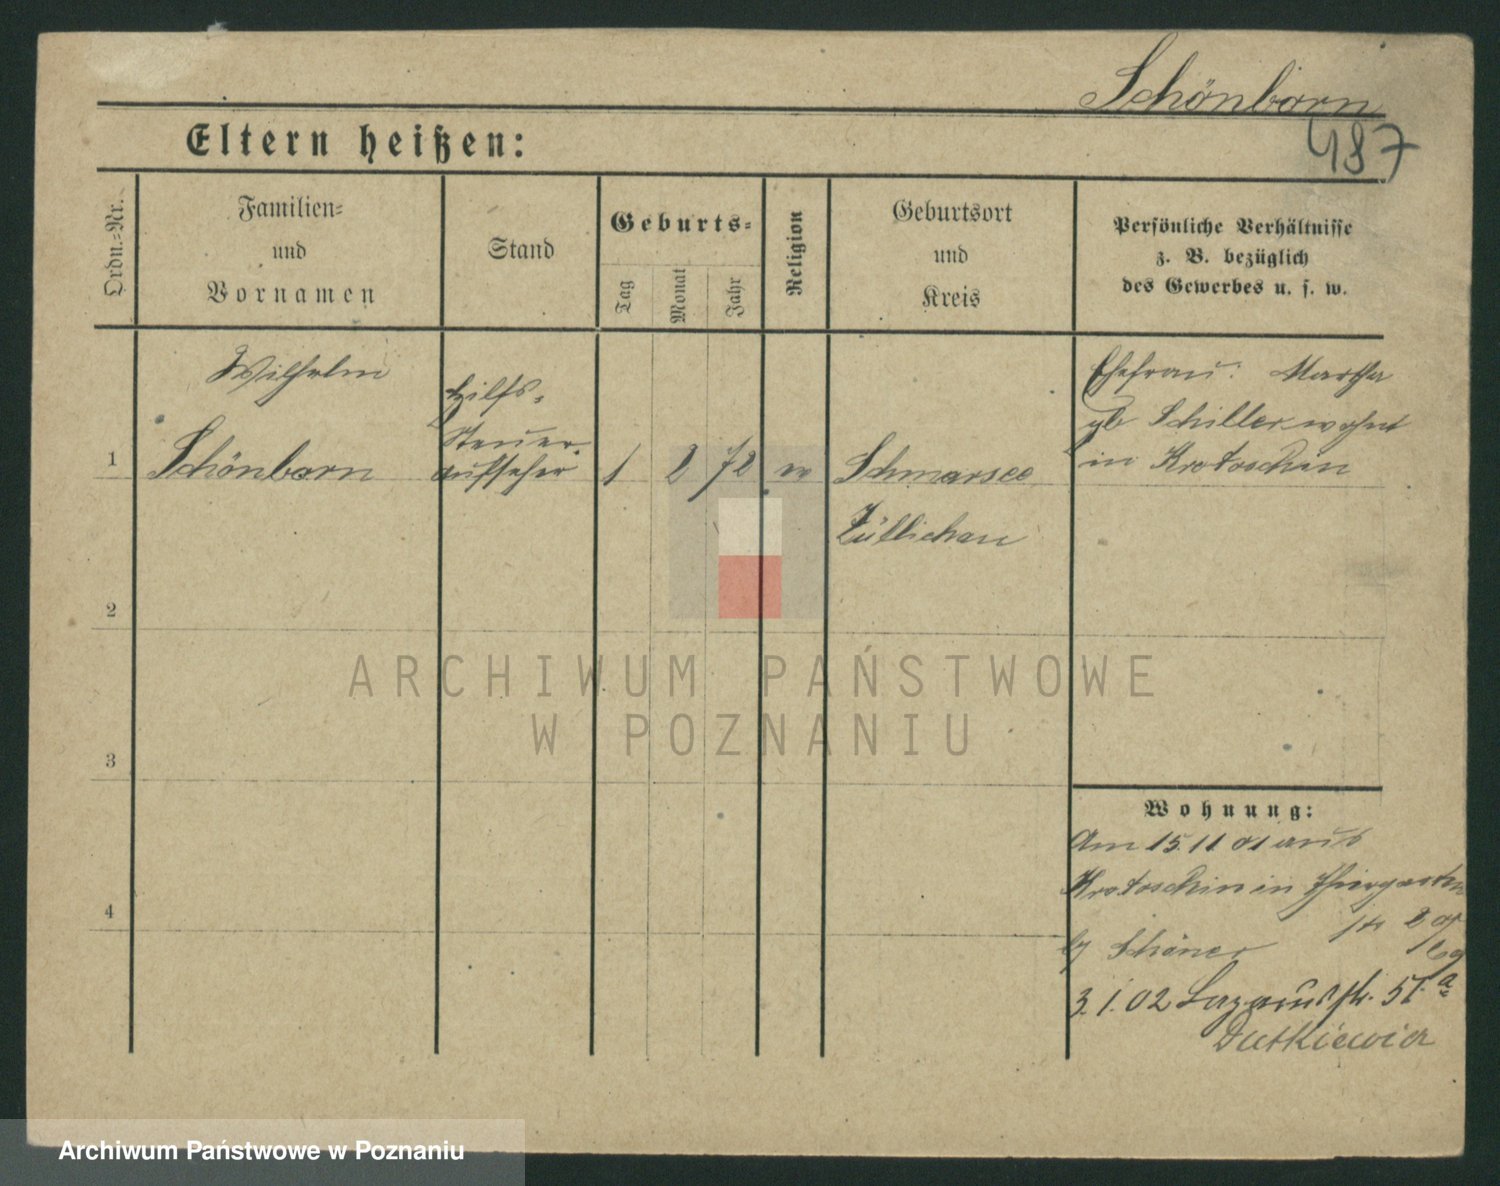 Schönborn
487
Eltern heißen:
Ordn.-Nr.
Familien-
und
Vornamen
Stand
Geburts-
Tag
Monat
Jahr
Religion
Geburtsort
und
Kreis
Persönliche Verhältnisse
z. B. bezüglich
des Gewerbes u. s. w.
Wilhelm
1 Schönborn
Hilfs-
Steuer-
aufseher
1 2 72 ev
Schmarsee
Züllichau
Ehefrau: Martha
gb Schiller wohnt
in Krotoschin
2
3
4
Wohnung:
Am 15.11 01 aus
Krotoschin in Thiergarten
str 2
bj Schöner
3.1.02 Lazarusstr. 5
Dutkiewicz
ARCHIWUM PAŃSTWOWE
W POZNANIU
Archiwum Państwowe w Poznaniu